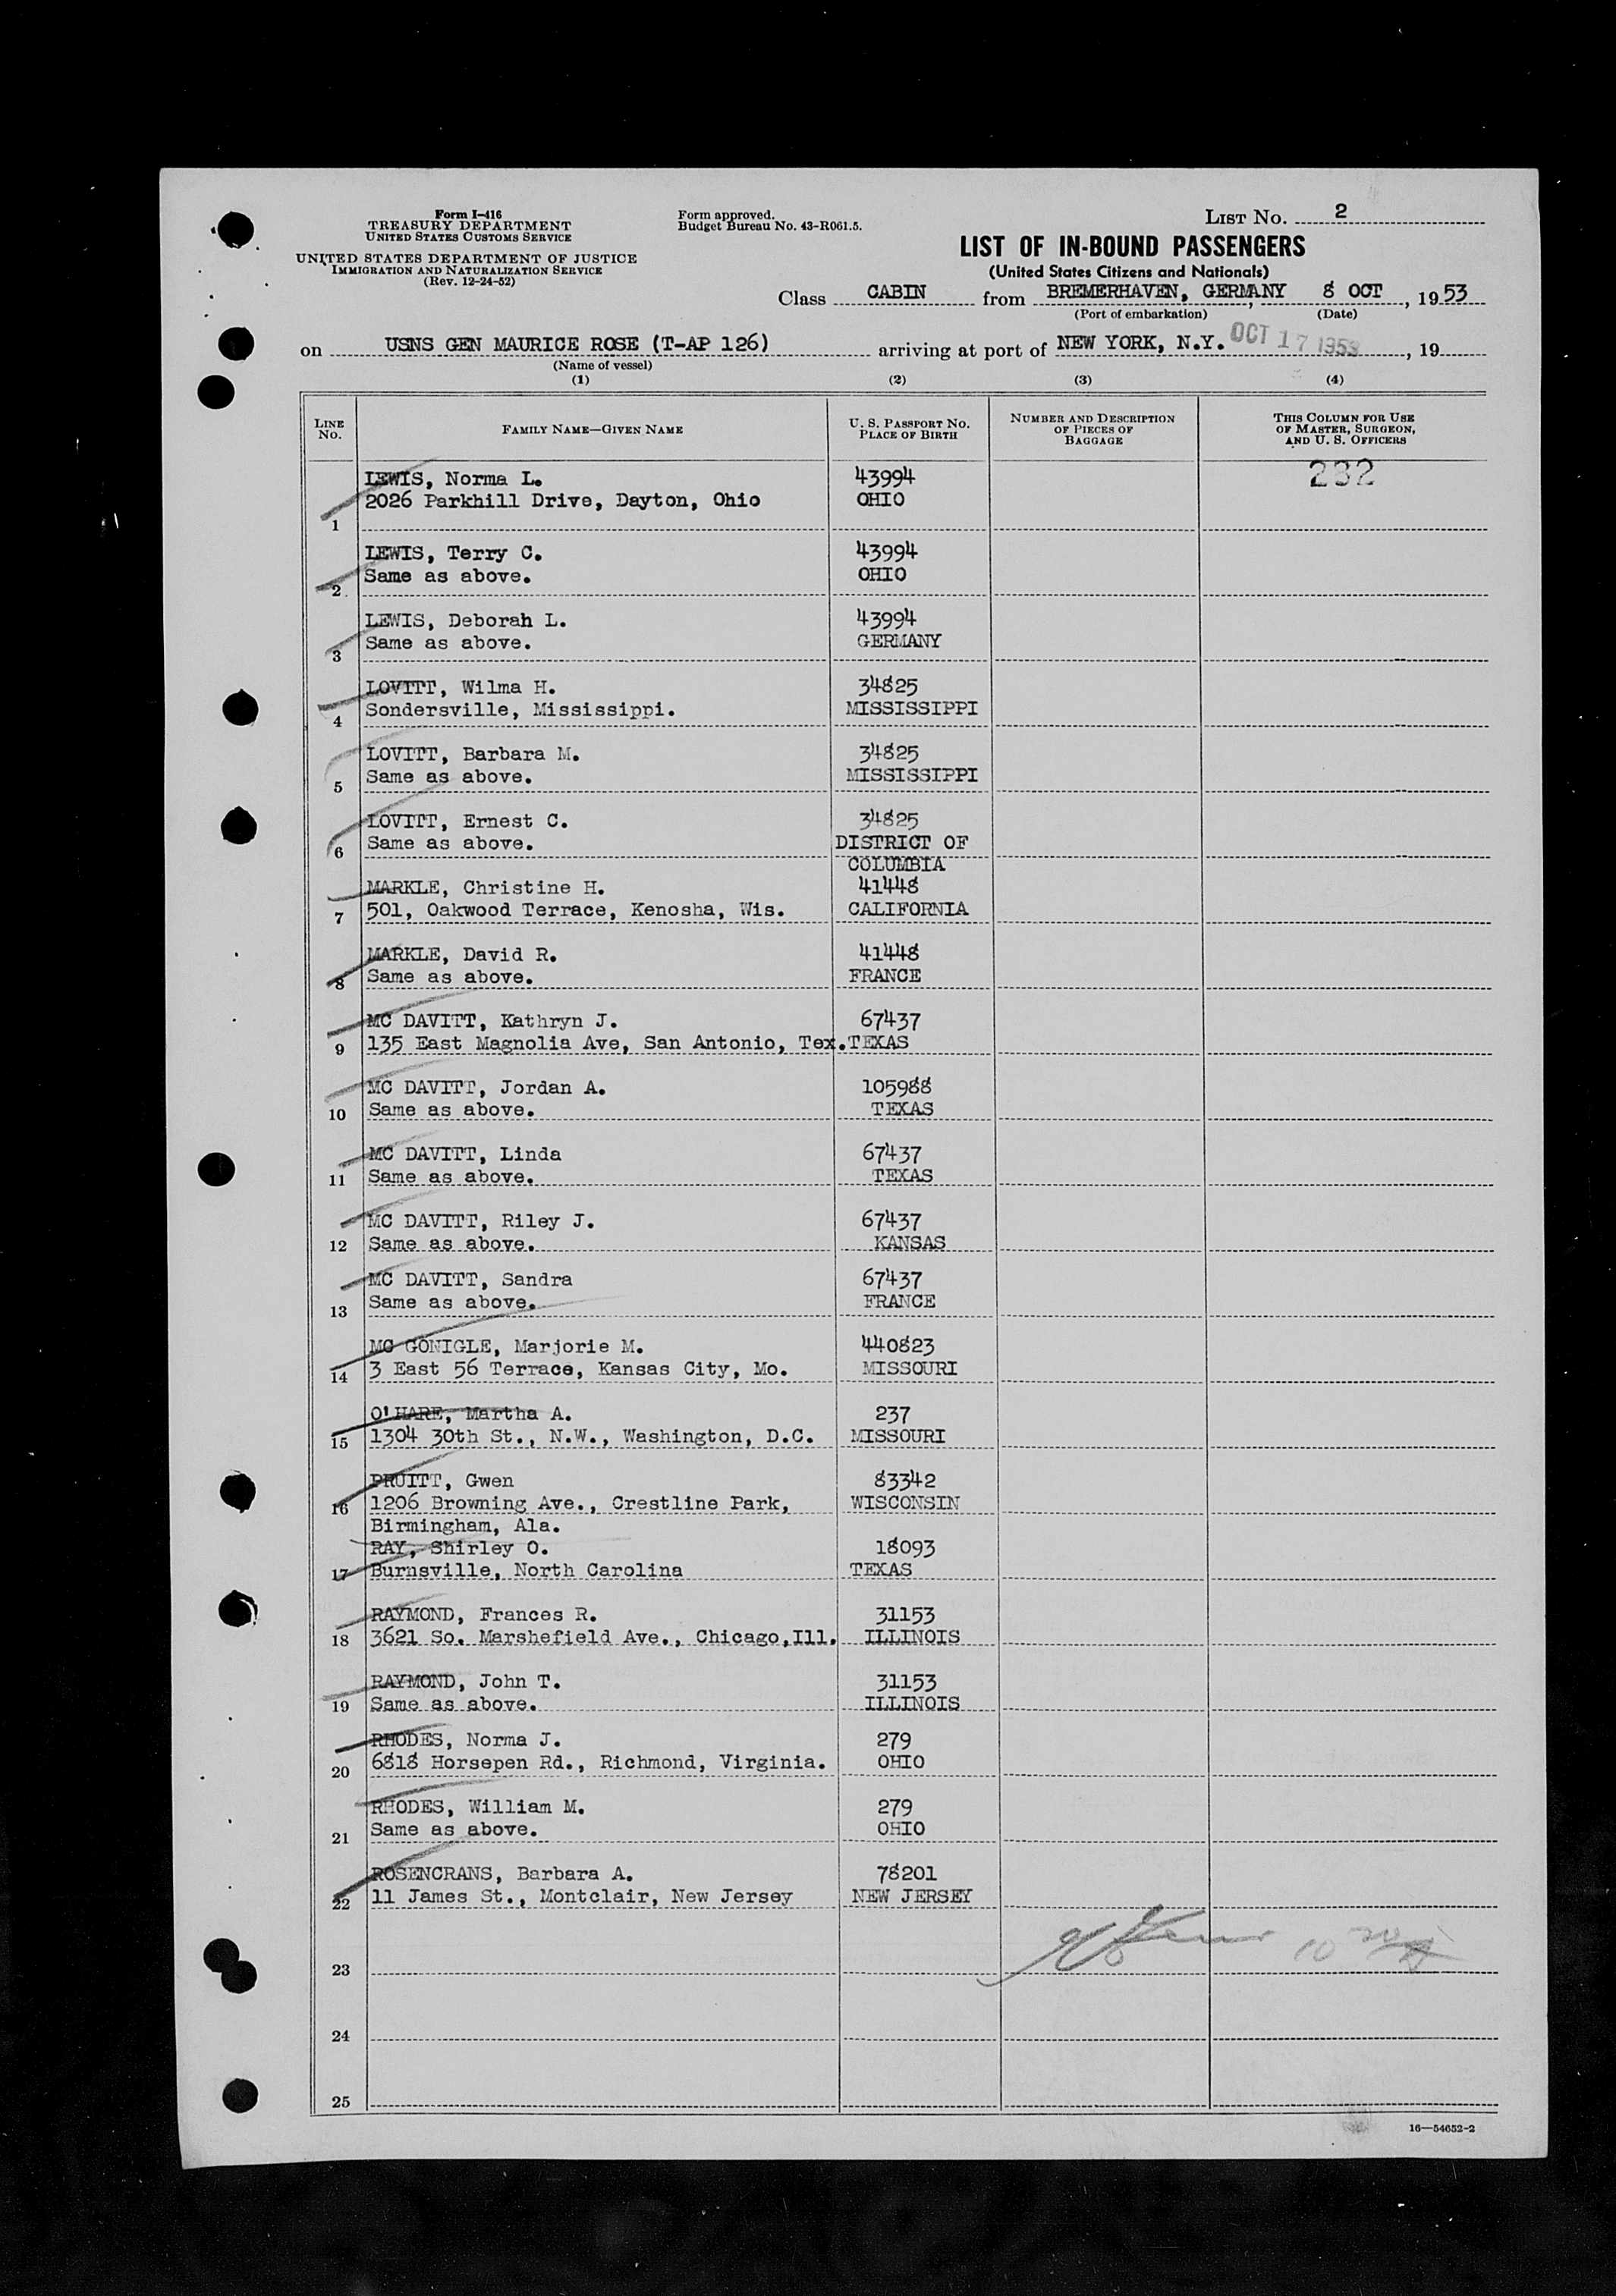 Form I-416
TREASURY DEPARTMENT
UNITED STATES CUSTOMS SERVICE
UNITED STATES DEPARTMENT OF JUSTICE
IMMIGRATION AND NATURALIZATION SERVICE
(Rev. 12-24-52)
Form approved.
Budget Bureau No. 43-R061.5.
LIST No. 2
LIST OF IN-BOUND PASSENGERS
(United States Citizens and Nationals)
Class CABIN from BREMERHAVEN, GERMANY, 8 OCT, 1953
(Port of embarkation) (Date)
on USNS GEN MAURICE ROSE (T-AP 126) arriving at port of NEW YORK, N.Y. OCT 17 1953, 19
(Name of vessel)
(1) (2) (3) (4)
LINE No. FAMILY NAME—GIVEN NAME U. S. PASSPORT No. PLACE OF BIRTH NUMBER AND DESCRIPTION OF PIECES OF BAGGAGE THIS COLUMN FOR USE OF MASTER, SURGEON, AND U. S. OFFICERS
LEWIS, Norma L. 43994 232
2026 Parkhill Drive, Dayton, Ohio OHIO
1
LEWIS, Terry C. 43994
Same as above. OHIO
2
LEWIS, Deborah L. 43994
Same as above. GERMANY
3
LOVITT, Wilma H. 34825
Sondersville, Mississippi. MISSISSIPPI
4
LOVITT, Barbara M. 34825
Same as above. MISSISSIPPI
5
LOVITT, Ernest C. 34825
6 Same as above. DISTRICT OF
COLUMBIA
MARKLE, Christine H. 41448
7 501, Oakwood Terrace, Kenosha, Wis. CALIFORNIA
MARKLE, David R. 41448
8 Same as above. FRANCE
MC DAVITT, Kathryn J. 67437
9 135 East Magnolia Ave, San Antonio, Tex. TEXAS
MC DAVITT, Jordan A. 105988
10 Same as above. TEXAS
MC DAVITT, Linda 67437
11 Same as above. TEXAS
MC DAVITT, Riley J. 67437
12 Same as above. KANSAS
MC DAVITT, Sandra 67437
13 Same as above. FRANCE
MC GONIGLE, Marjorie M. 440823
14 3 East 56 Terrace, Kansas City, Mo. MISSOURI
O'HARE, Martha A. 237
15 1304 30th St., N.W., Washington, D.C. MISSOURI
PRUITT, Gwen 83342
16 1206 Browning Ave., Crestline Park, WISCONSIN
Birmingham, Ala.
RAY, Shirley O. 18093
17 Burnsville, North Carolina TEXAS
RAYMOND, Frances R. 31153
18 3621 So. Marshefield Ave., Chicago, Ill. ILLINOIS
RAYMOND, John T. 31153
19 Same as above. ILLINOIS
RHODES, Norma J. 279
20 6818 Horsepen Rd., Richmond, Virginia. OHIO
RHODES, William M. 279
21 Same as above. OHIO
ROSENCRANS, Barbara A. 78201
22 11 James St., Montclair, New Jersey NEW JERSEY
23
24
25
16—54652-2